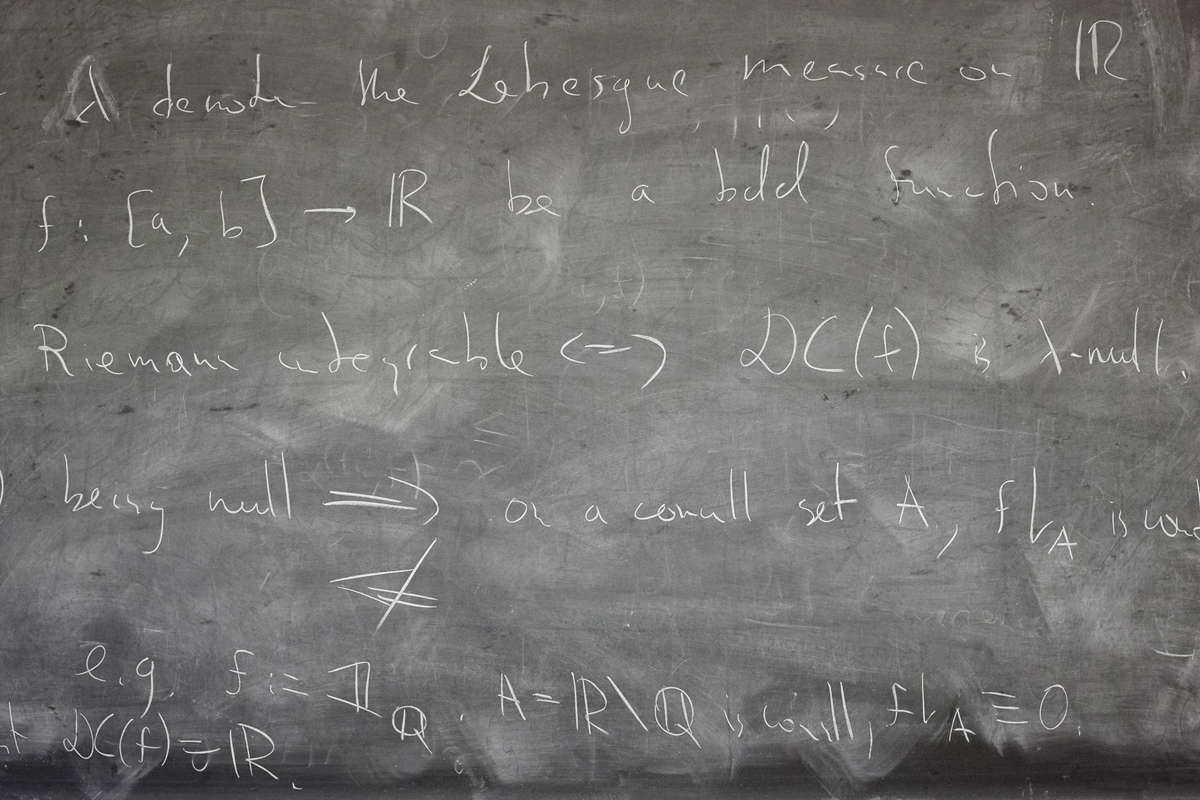 λ denote the Lebesgue measure on ℝ
f: [a, b] → ℝ be a bdd function.
Riemann integrable <=> DC(f) is λ-null.
) being null ⟹ on a conull set A, f|_A is
⟸̸
e.g. f := 𝟙_ℚ. A = ℝ\ℚ is conull, f|_A ≡ 0.
DC(f) = ℝ.